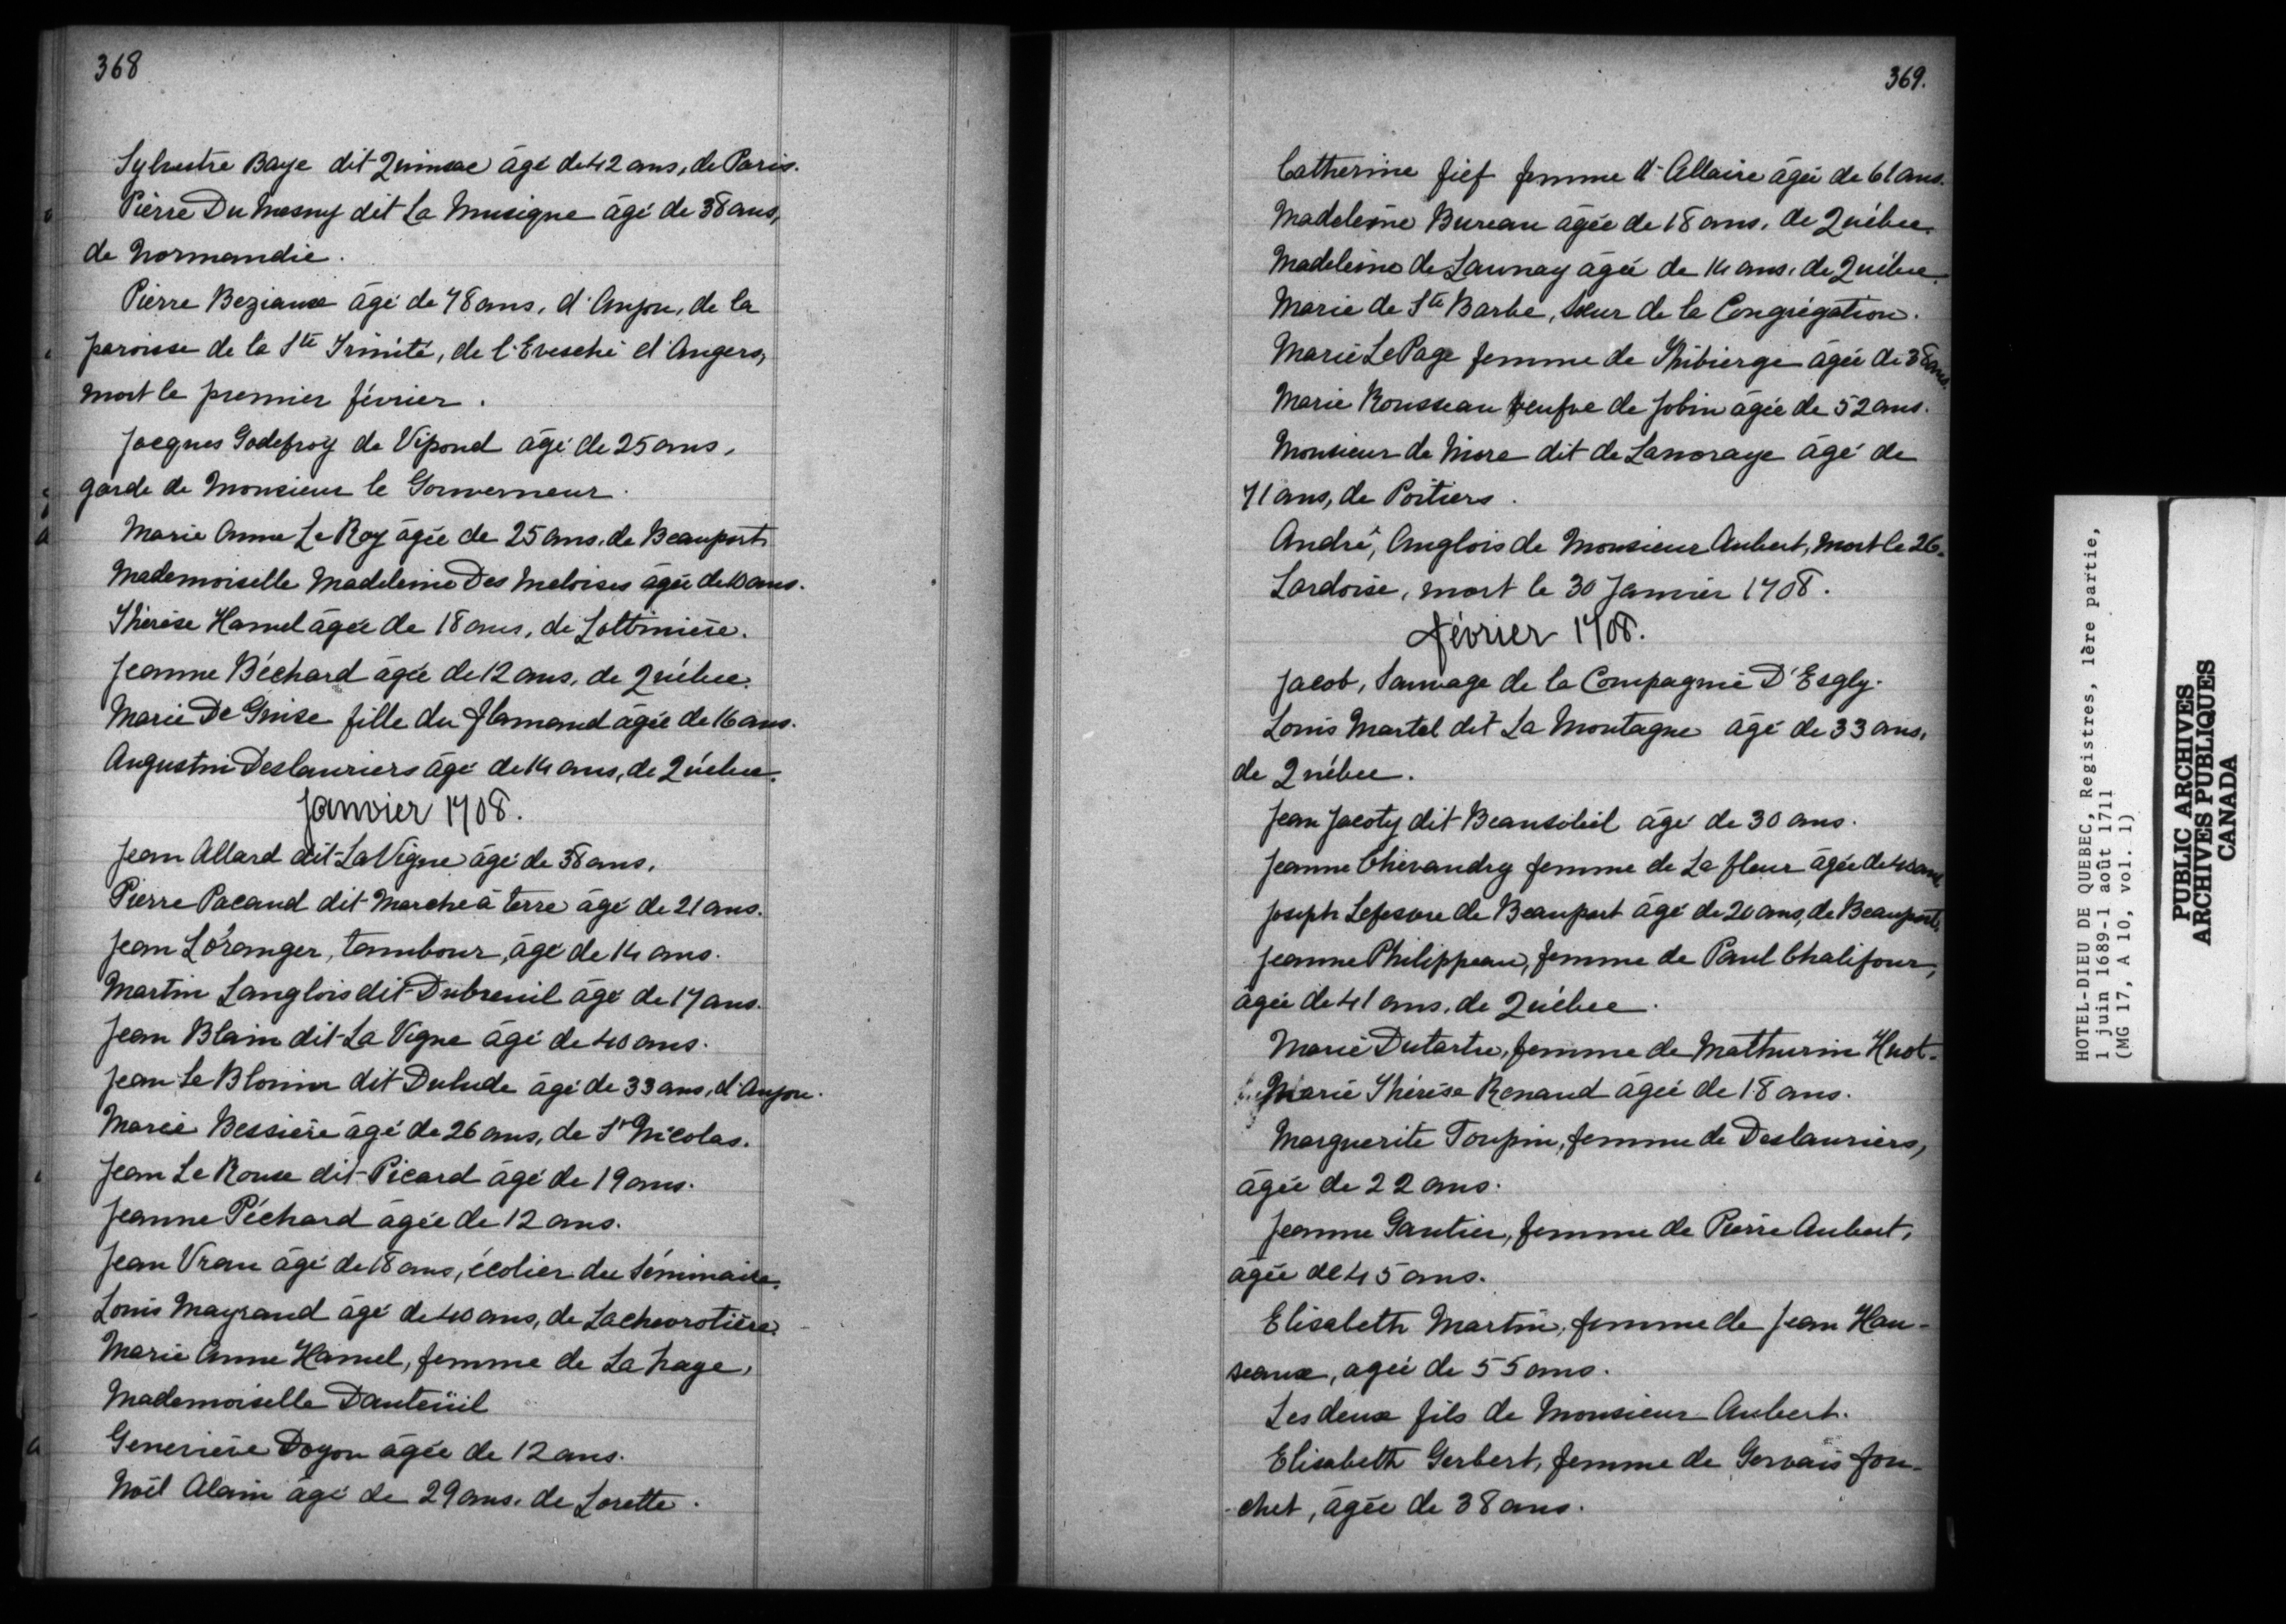 368
Sylvestre Baye dit Quinsac âgé de 42 ans, de Paris.
Pierre Du Mesny dit La Musique âgé de 38 ans,
de Normandie.
Pierre Beziaux âgé de 78 ans, d'Anjou, de la
paroisse de la Ste Trinité, de l'Evesché d'Angers,
mort le premier février.
Jacques Godefroy de Vipond âgé de 25 ans,
garde de Monsieur le Gouverneur.
Marie Anne Le Roy âgée de 25 ans, de Beauport.
Mademoiselle Madeleine Des Meloises âgée de 10 ans.
Thérèse Hamel âgée de 18 ans, de Lotbinière.
Jeanne Béchard âgée de 12 ans, de Québec.
Marie De Guise fille du flamand âgée de 16 ans.
Augustin Deslauriers âgé de 14 ans, de Québec.
Janvier 1708.
Jean Allard dit La Vigne âgé de 38 ans.
Pierre Pacaud dit Marche à terre âgé de 21 ans.
Jean Loranger, tambour, âgé de 14 ans.
Martin Langlois dit Dubreuil âgé de 17 ans.
Jean Blain dit La Vigne âgé de 40 ans.
Jean Le Blouin dit Dulude âgé de 33 ans, d'Anjou.
Marie Bessière âgé de 26 ans, de St Nicolas.
Jean Le Roux dit Picard âgé de 19 ans.
Jeanne Péchard âgée de 12 ans.
Jean Vrau âgé de 18 ans, écolier du Séminaire.
Louis Mayrand âgé de 40 ans, de Lachevrotière.
Marie Anne Hamel, femme de La hage,
Mademoiselle Dauteüil
Geneviève Doyon âgée de 12 ans.
Noël Alain âgé de 29 ans, de Lorette.
369.
Catherine fief femme d'Allaire âgée de 61 ans.
Madeleine Bureau âgée de 18 ans, de Québec.
Madeleine de Launay âgée de 14 ans, de Québec.
Marie de Ste Barbe, soeur de la Congrégation.
Marie LePage femme de Thibierge âgée de 38 ans.
Marie Rousseau veufve de Jobin âgée de 52 ans.
Monsieur de Niore dit de Lanoraye âgé de
71 ans, de Poitiers.
André, Anglois de Monsieur Aubert, mort le 26.
Lardoise, mort le 30 Janvier 1708.
février 1708.
Jacob, Sauvage de la Compagnie D'Esgly.
Louis Martel dit La Montagne âgé de 33 ans,
de Québec.
Jean Jacoty dit Beausoleil âgé de 30 ans.
Jeanne Chevaudry femme de La fleur âgée de 40 ans
Joseph Lefesvre de Beauport âgé de 20 ans, de Beauport.
Jeanne Philippeau, femme de Paul Chalifour,
âgée de 41 ans, de Québec.
Marie Dutartre, femme de Mathurin Huot.
Marie Thérèse Renaud âgée de 18 ans.
Marguerite Toupin, femme de Deslauriers,
âgée de 22 ans.
Jeanne Gautier, femme de Pierre Aubert,
âgée de 45 ans.
Elisabeth Martin, femme de Jean Hau-
seaux, agée de 55 ans.
Les deux fils de Monsieur Aubert.
Elisabeth Gerbert, femme de Gervais fou-
-chet, âgée de 38 ans.
HOTEL-DIEU DE QUEBEC, Registres, 1ère partie,
1 juin 1689-1 août 1711
(MG 17, A 10, vol. 1)
PUBLIC ARCHIVES
ARCHIVES PUBLIQUES
CANADA